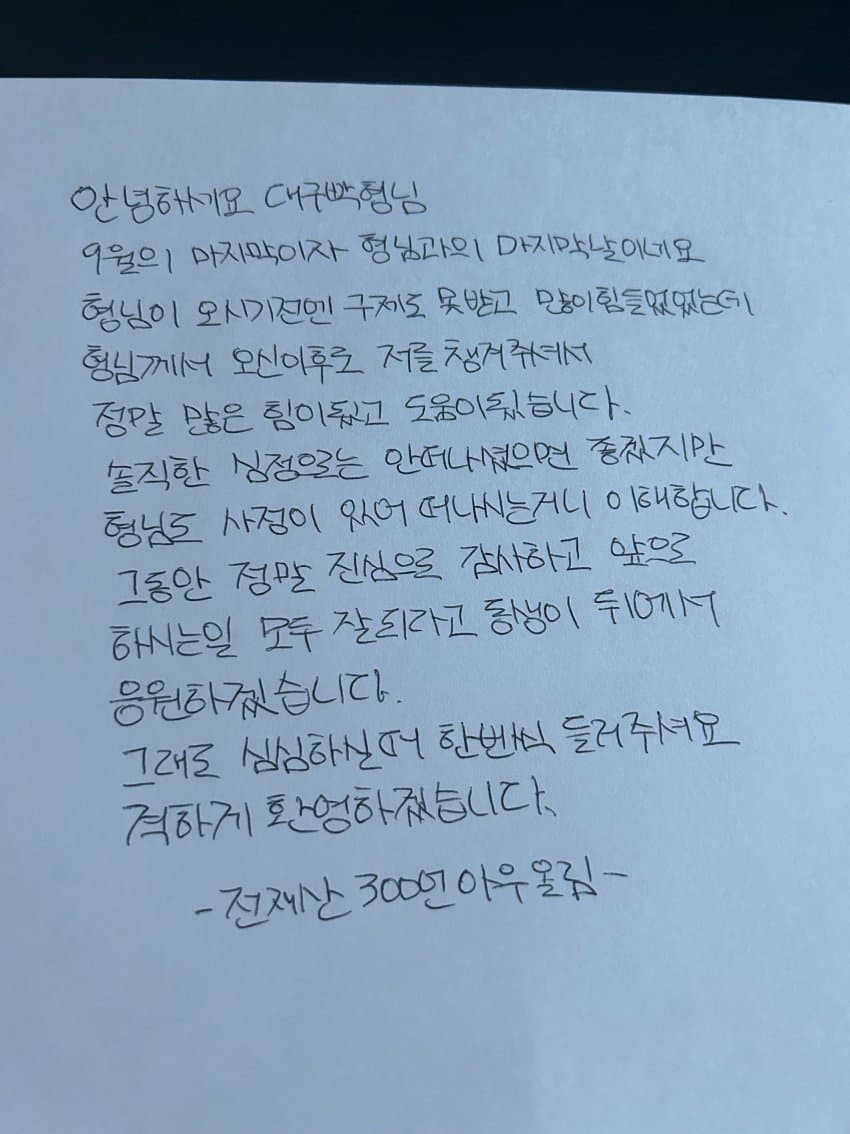 안녕하세요 대구박형님
9월의 마지막이자 형님과의 마지막날이네요
형님이 오시기전엔 구제도 못받고 많이힘들었었는데
형님께서 오신이후로 저를 챙겨주셔서
정말 많은 힘이됐고 도움이됐습니다.
솔직한 심정으로는 안떠나셨으면 좋겠지만
형님도 사정이 있어 떠나시는거니 이해합니다.
그동안 정말 진심으로 감사하고 앞으로
하시는일 모두 잘되라고 동생이 뒤에서
응원하겠습니다.
그래도 심심하실때 한번씩 들러주셔요
격하게 환영하겠습니다.
-전재산 300언 아우 올림-